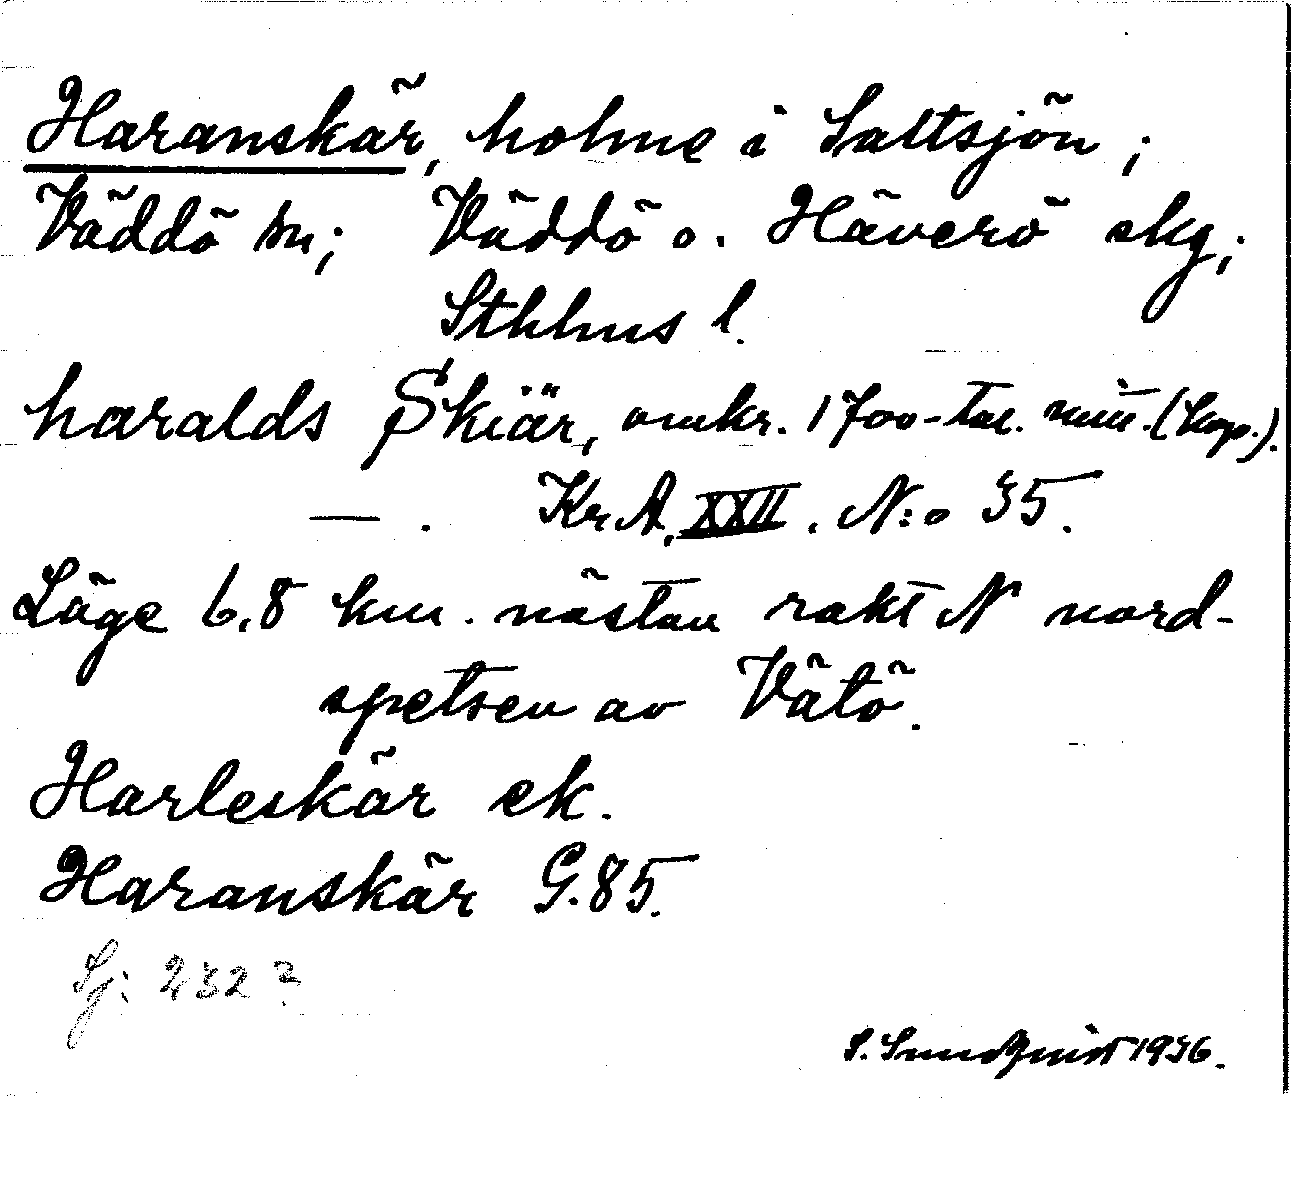 Haranskär, holme i Saltsjön;
Väddö sn; Väddö o. Häverö skg;
Sthlms l.
haralds Skiär, omkr. 1700-tal. mitt. (kop.).
— . Kr A, XXII. N:o 35.
Läge 6,8 km. nästan rakt N nord-
spetsen av Vätö.
Harleskär ek.
Haranskär G. 85.
Sj: 232?
S. Sundquist 1936.